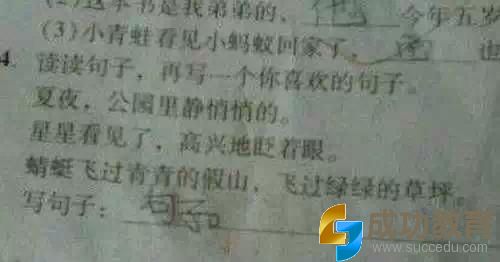 (2)这本书是我弟弟的、他 今年五岁
(3)小青蛙看见小蚂蚁回家了，
4. 读读句子，再写一个你喜欢的句子。
夏夜，公园里静悄悄的。
星星看见了，高兴地眨着眼。
蜻蜓飞过青青的假山，飞过绿绿的草坪。
写句子：句子
成功教育
www.succedu.com